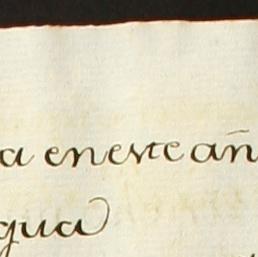 a en este añ
gua